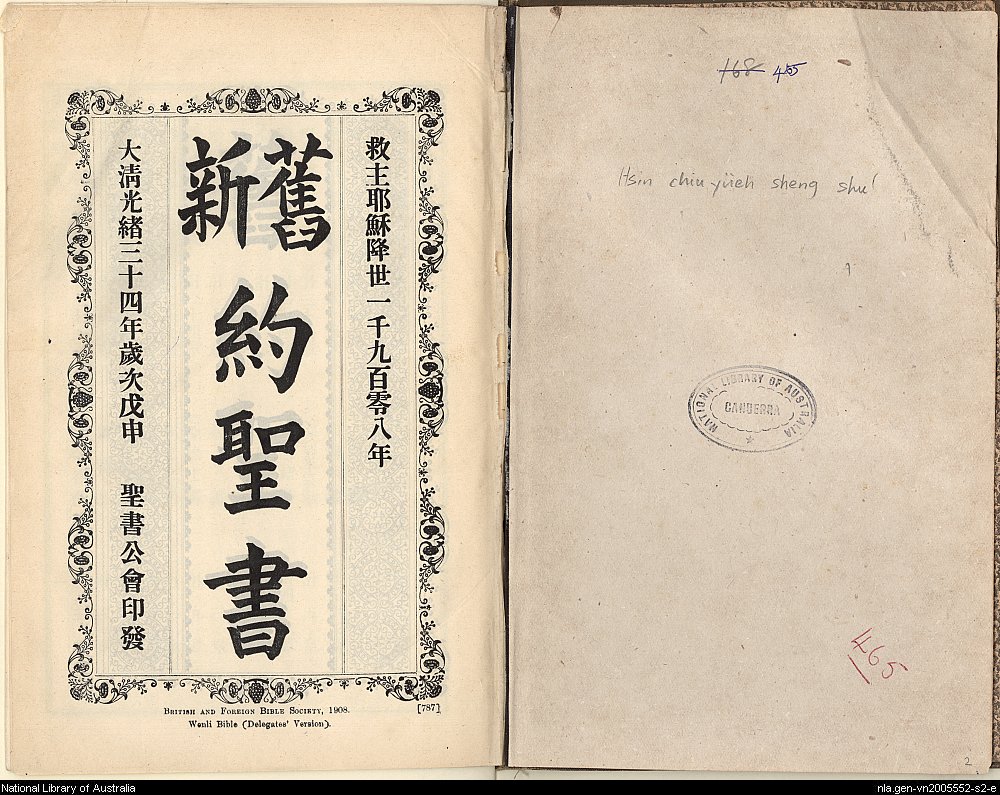 救主耶穌降世一千九百零八年
新舊
約聖書
大淸光緒三十四年歲次戊申 聖書公會印發
British and Foreign Bible Society, 1908.
[787]
Wenli Bible (Delegates' Version).
168 465
Hsin chiu yüeh sheng shu
NATIONAL LIBRARY OF AUSTRALIA
CANBERRA
465
2
National Library of Australia
nla.gen-vn2005552-s2-e